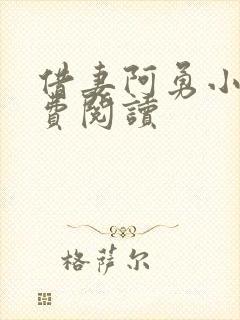 借妻阿勇小
費閱讀
格萨尔